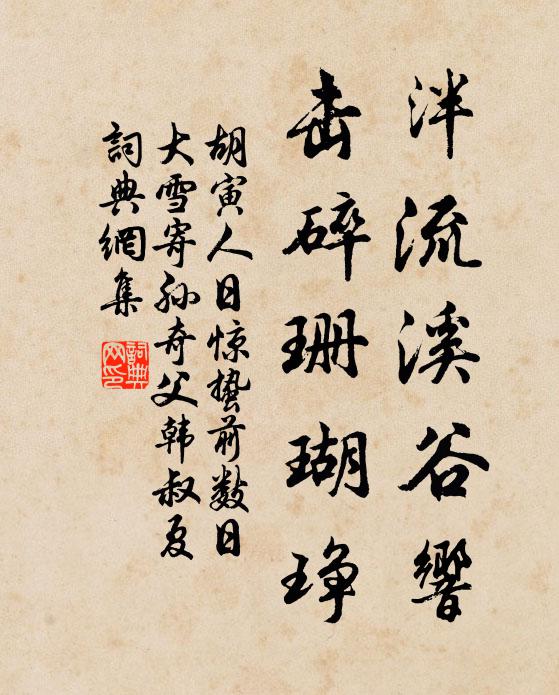 泮流溪谷響
击碎珊瑚琤
胡寅人日惊蛰前数日
大雪寄孙奇父韩叔夏
詞典網集
詞典网印